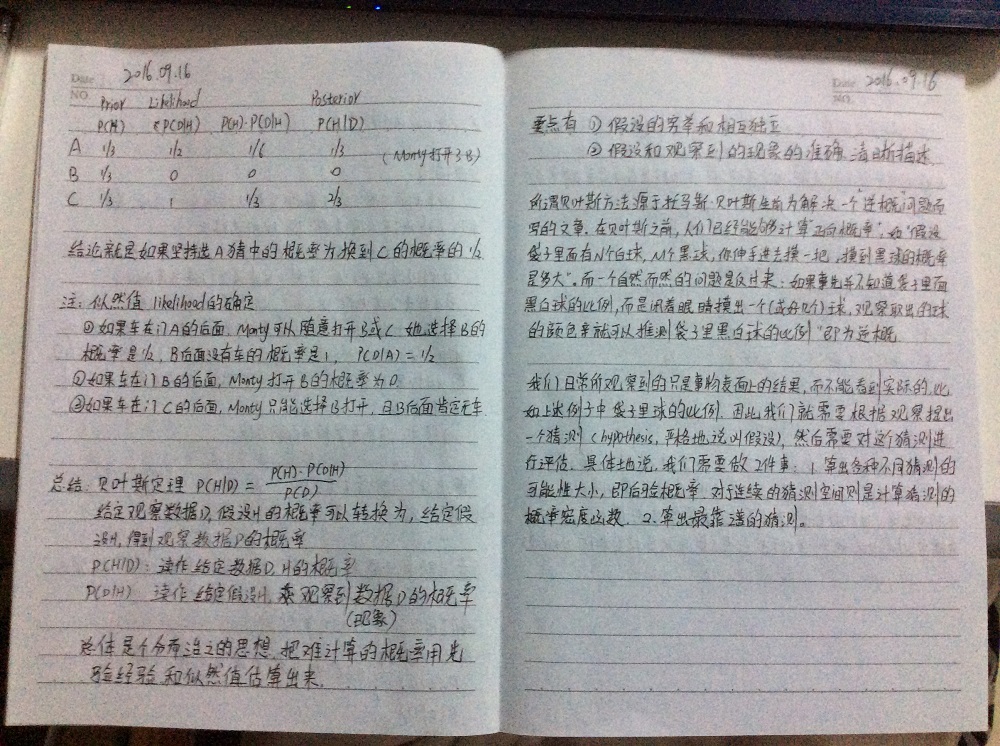 Date 2016.09.16
NO
Prior Likelihood Posterior
P(H) P(D|H) P(H)·P(D|H) P(H|D)
A 1/3 1/2 1/6 1/3 (Monty打开了B)
B 1/3 0 0 0
C 1/3 1 1/3 2/3
结论就是如果坚持选A猜中的概率为换到C的概率的1/2
注: 似然值 likelihood的确定
①如果车在门A的后面, Monty可以随意打开B或C 她选择B的
概率是1/2, B后面没有车的概率是1, P(D|A) = 1/2
②如果车在门B的后面, Monty打开B的概率为0
③如果车在门C的后面, Monty只能选择B打开, 且B后面肯定无车
总结: 贝叶斯定理 P(H|D) = P(H)·P(D|H) / P(D)
给定观察数据D, 假设H的概率可以转换为, 给定假
设H, 得到观察数据D的概率
P(H|D): 读作 给定数据D, H的概率
P(D|H) 读作 给定假设H, 观察到数据D的概率
(现象)
总体是个分布治之的思想, 把难计算的概率用先
验经验和似然值估算出来.
Date 2016.09.16
NO.
重点有 ① 假设的穷举和相互独立
② 假设和观察到的现象的准确、清晰描述
所谓贝叶斯方法源于托马斯·贝叶斯生前为解决一个"逆概"问题而
写的文章. 在贝叶斯之前, 人们已经能够计算"正向概率", 如"假设
袋子里面有N个白球, M个黑球, 你伸手进去摸一把, 摸到黑球的概率
是多大". 而一个自然而然的问题是反过来: 如果事先并不知道袋子里面
黑白球的比例, 而是闭着眼睛摸出一个(或好几个)球, 观察取出的球
的颜色来就可以推测袋子里黑白球的比例" 即为逆概
我们日常所观察到的只是事物表面上的结果, 而不能看到实际的, 比
如上述例子中袋子里球的比例. 因此我们就需要根据观察提出
一个猜测 (hypothesis, 严格地说叫假设), 然后需要对这个猜测进
行评估. 具体地说, 我们需要做2件事: 1. 算出各种不同猜测的
可能性大小, 即后验概率. 对于连续的猜测空间则是计算猜测的
概率密度函数. 2. 算出最靠谱的猜测。